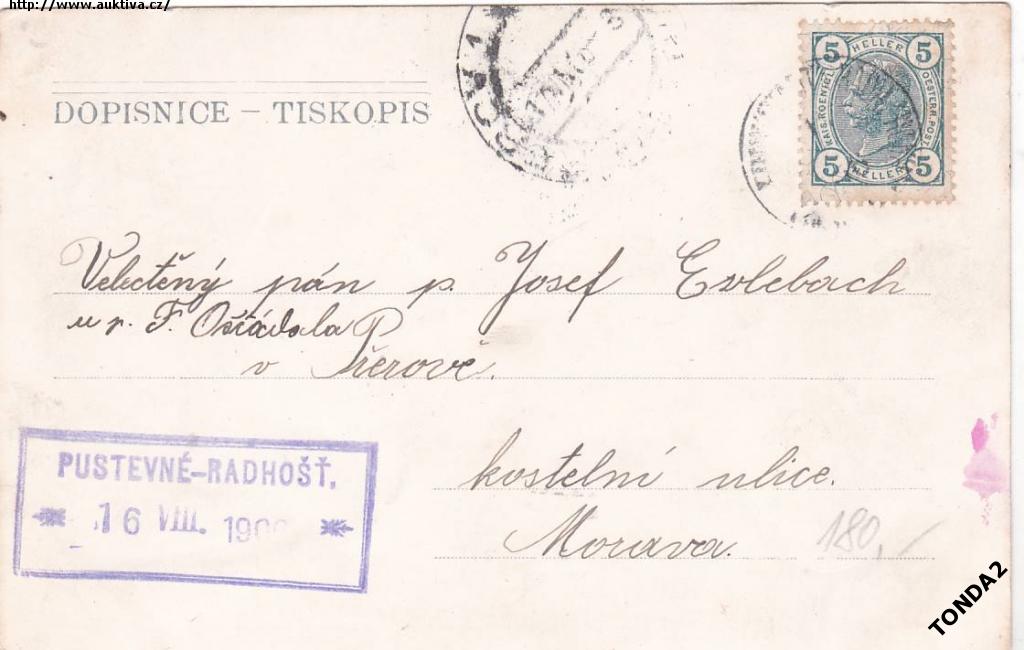 http://www.auktiva.cz/
DOPISNICE – TISKOPIS
5 HELLER 5
KAIS. KOENIGL. OESTERR. POST
5 HELLER 5
Velectěný pán p. Josef Erlebach
u p. F. Ošťádala
v Přerově.
kostelní ulice.
Morava.
PUSTEVNÉ-RADHOŠŤ.
16 VIII.
180,-
TONDA2